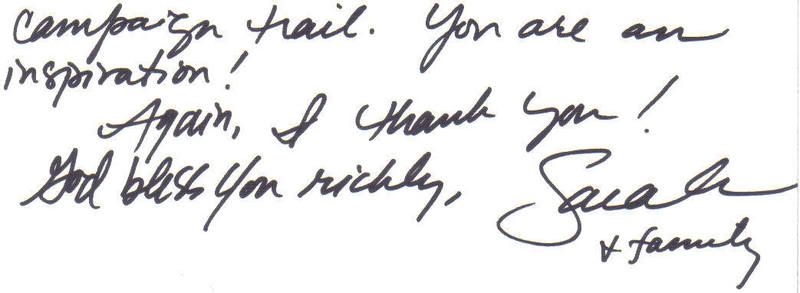 campaign trail. You are an
inspiration!
Again, I thank you!
God bless you richly, Sarah
+ family